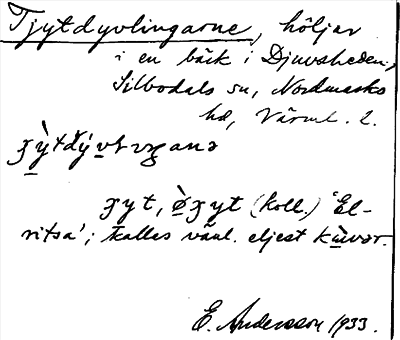 Tjytdyvlingarne, höljar
i en bäck i Djuvsheden,
Silbodals sn, Nordmarks
hd, Värml. l.
ꝫyt, øꝫyt (koll.) 'El-
ritsa'; kallas vanl. eljest kùvər.
E. Andersson 1933.